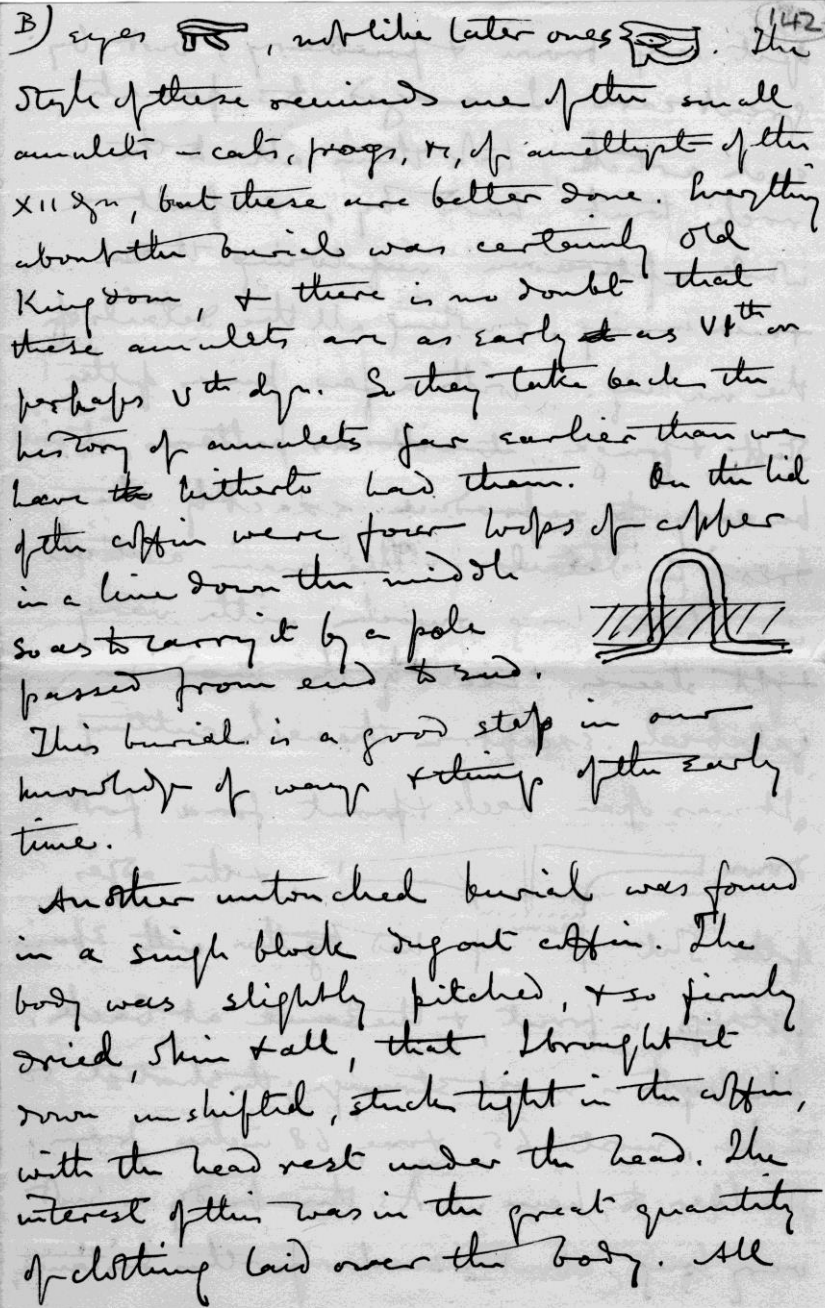 B) 142
eyes , not like later ones . The
style of these reminds me of the small
amulets – cats, frogs, &c, of amethyst of the
XII dyn, but these are better done. Everything
about the burial was certainly Old
Kingdom, & there is no doubt that
these amulets are as early as VIth or
perhaps Vth dyn. So they take back the
history of amulets far earlier than we
have hitherto had them. On the lid
of the coffin were four loops of copper
in a line down the middle
so as to carry it by a pole
passed from end to end.
This burial is a good step in our
knowledge of ways & things of the early
time.
Another untouched burial was found
in a single block dugout coffin. The
body was slightly pitched, & so firmly
dried, skin & all, that I brought it
down unshifted, stuck tight in the coffin,
with the head rest under the head. The
interest of this was in the great quantity
of clothing laid over the body. All